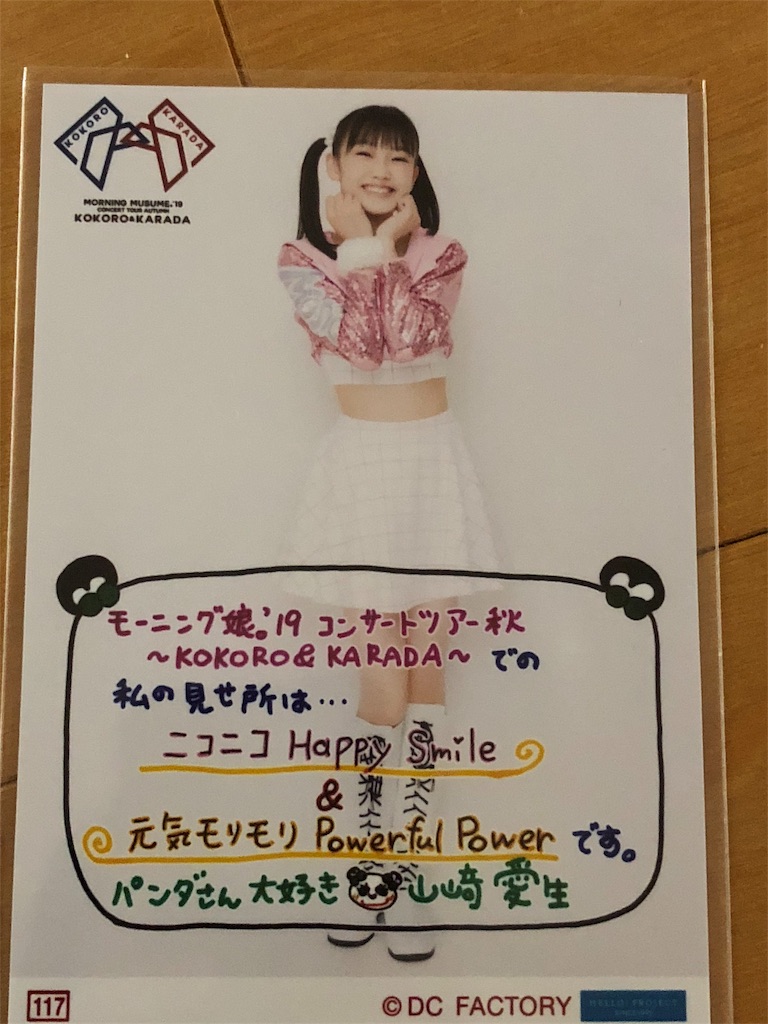 KOKORO
KARADA
MORNING MUSUME。'19
CONCERT TOUR AUTUMN
KOKORO&KARADA
モーニング娘。'19 コンサートツアー秋
～KOKORO& KARADA～ での
私の見せ所は…
ニコニコ Happy Smile
&
元気モリモリ Powerful Power です。
パンダさん大好き 山﨑 愛生
117
©DC FACTORY
HELLO! PROJECT